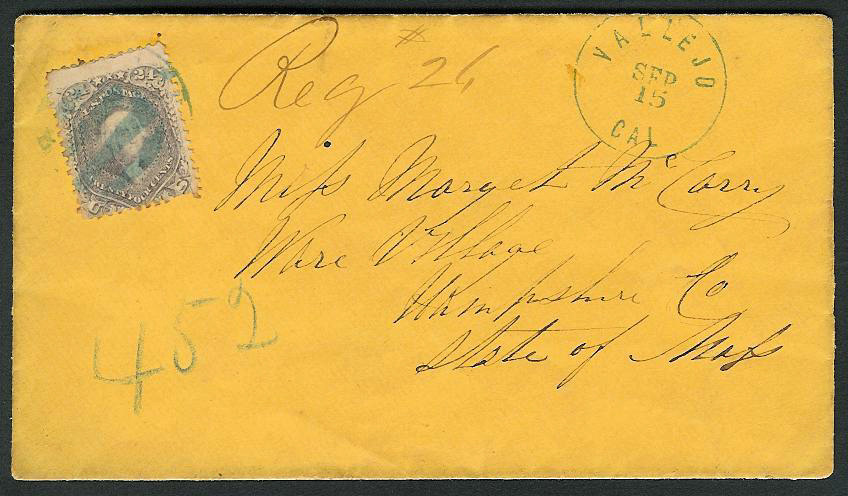 Reg # 26
VALLEJO
SEP
15
CAL
24 24
U.S. POSTAGE
TWENTY FOUR CENTS
U S
Miss Marget McCarry
Ware Village
Hampshire Co
State of Mass
452